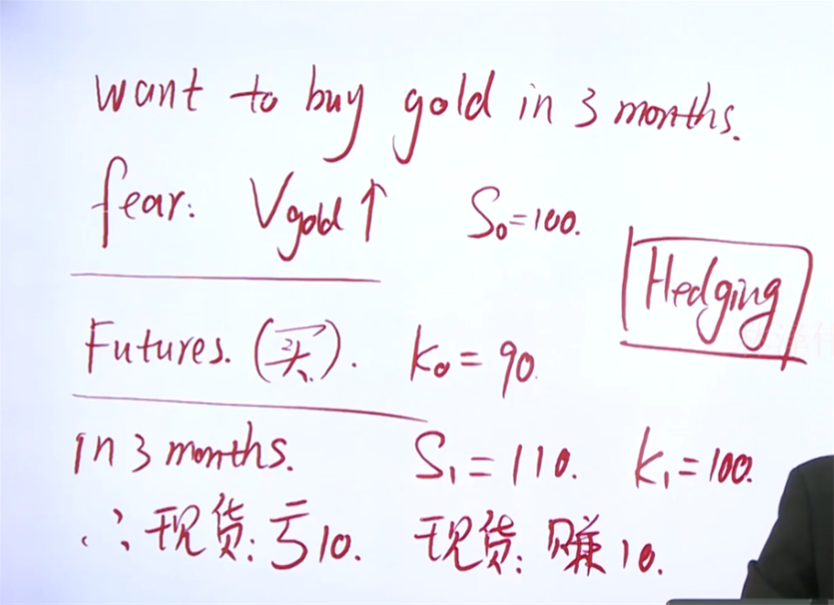 want to buy gold in 3 months.
fear: Vgold↑ S₀=100.
Hedging
Futures. (买). K₀=90.
in 3 months. S₁=110. K₁=100.
∴现货:亏10. 现货:赚10.